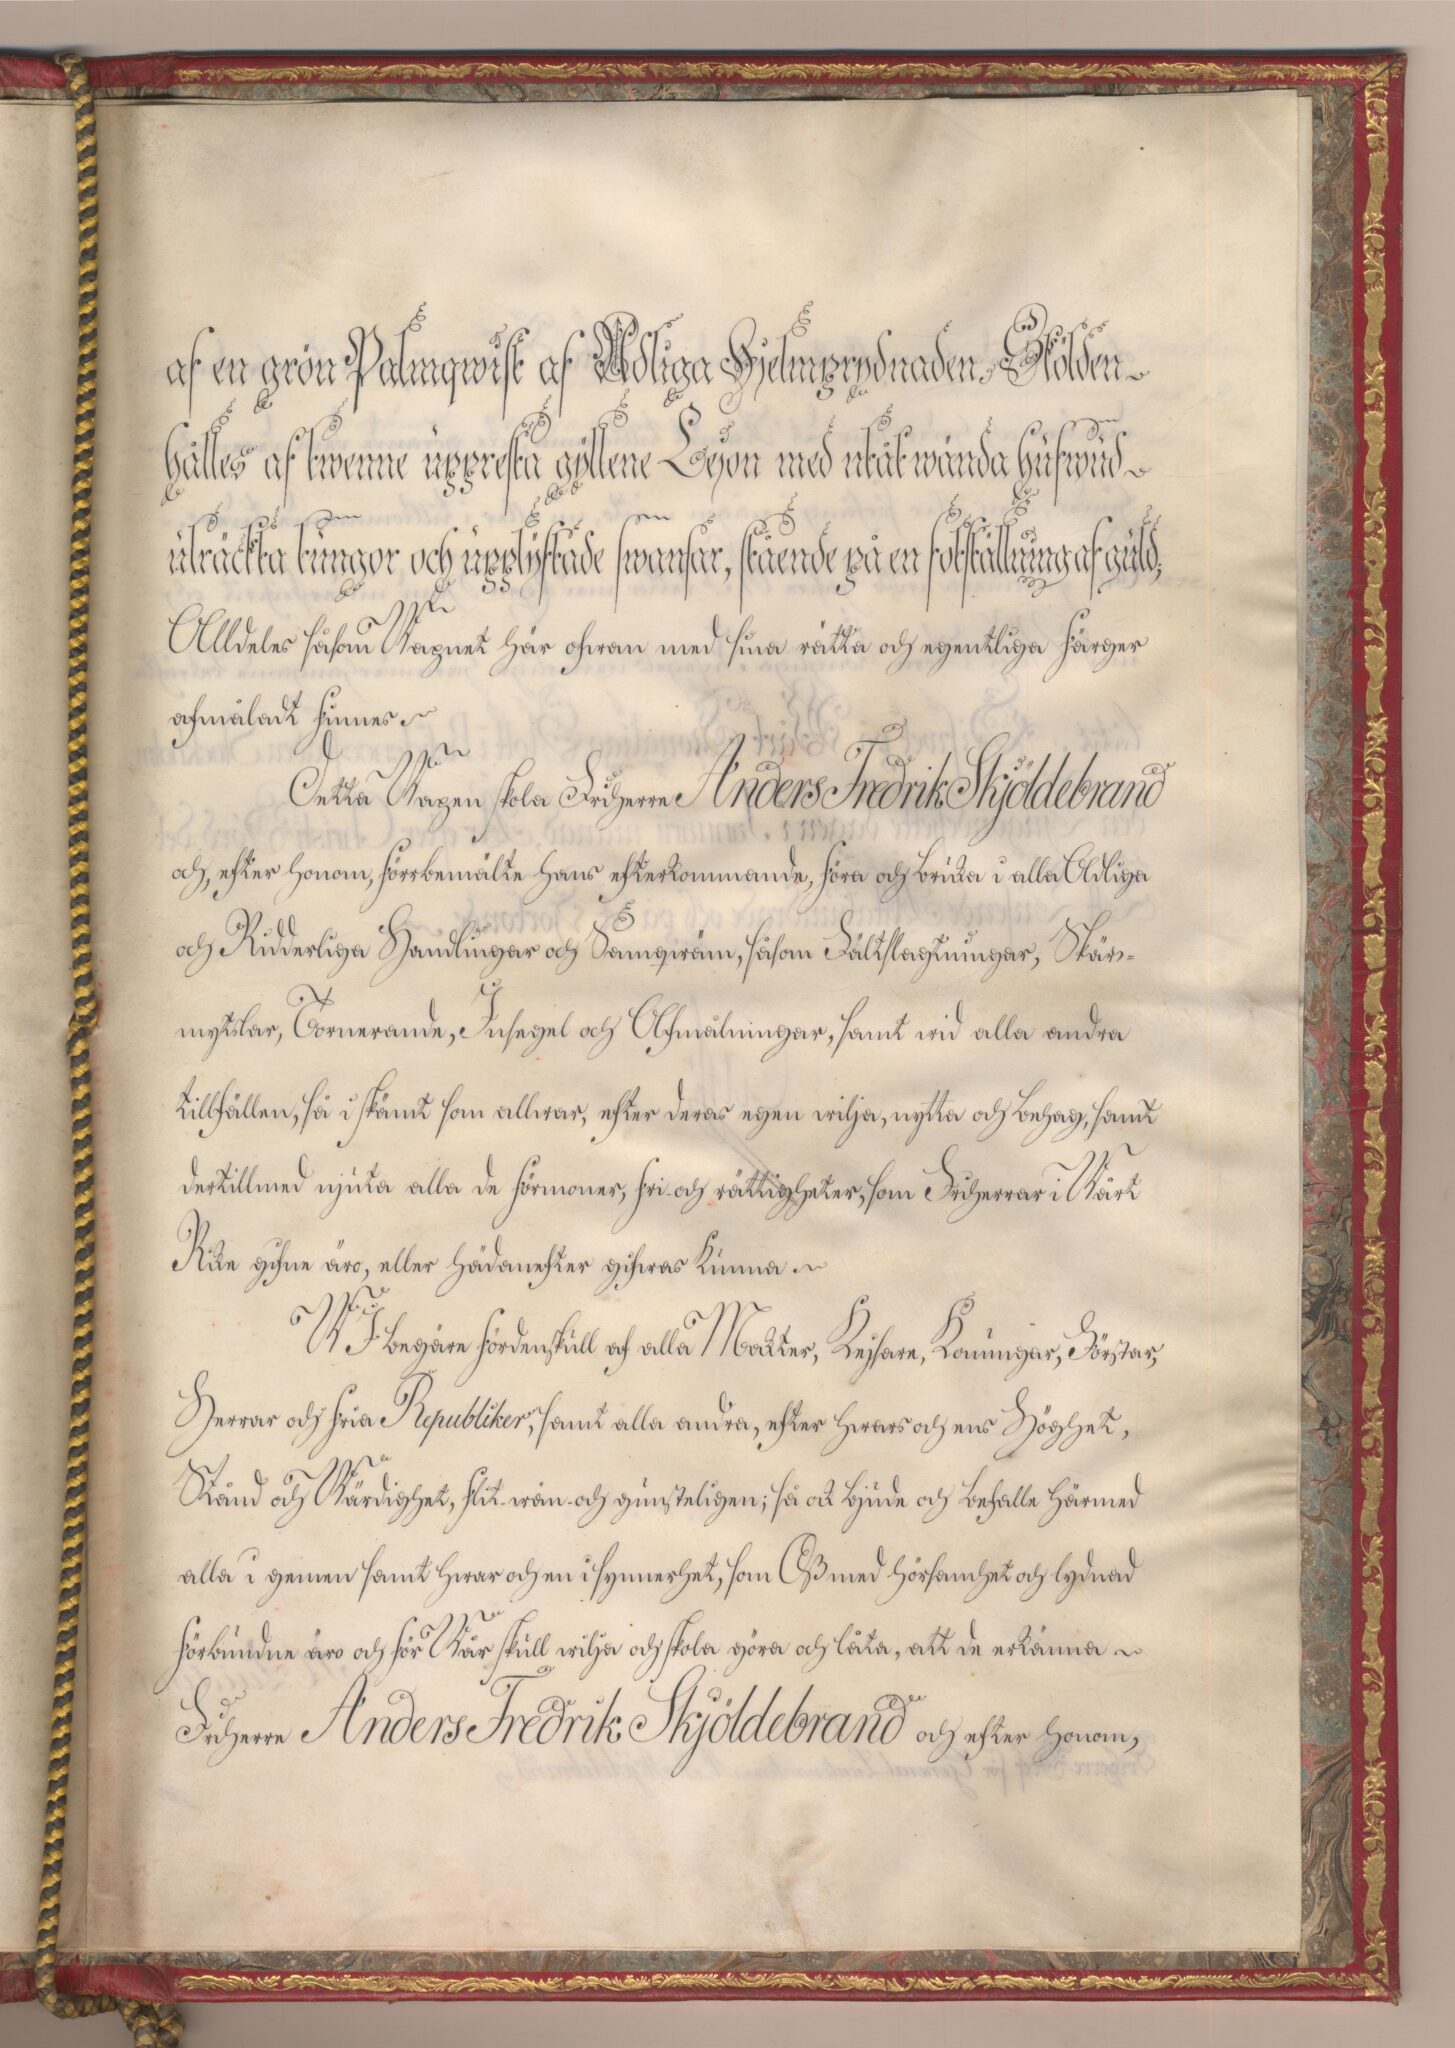 af en grön Palmqwist af Adliga Hjelmprydnaden. Skölden
hålles af twenne uppresta gyllene Leyon med utåt wända hufwud
uträckta tungor och upplyftade swansar, stående på en fotställning af guld;
Alldeles såsom Wapnet här ofwan med sina rätta och egentliga färger
afmåladt finnes
Detta Wapen skola Friherre Anders Fredrik Skjöldebrand
och, efter honom, förrbemälte hans efterkommande, föra och bruka i alla Adliga
och Ridderliga Handlingar och Samqwäm, såsom Fältslagtningar, Skär-
mytslar, Tornerande, Insegel och Afmålningar, samt wid alla andra
tillfällen, så i skämt som allwar, efter deras egen wilja, nytta och behag, samt
dertillmed njuta alla de förmoner, fri- och rättigheter, som Friherrar i Wårt
Rike gifne äro, eller hädanefter gifwas kunna
WI begäre fördenskull af alla Makter, Kejsare, Konungar, Förstar,
Herrar och fria Republiker, samt alla andra, efter hwars och ens Höghet,
Stånd och Wärdighet, flit- wän- och gunsteligen; så ock bjude och befalle härmed
alla i gemen samt hwar och en i synnerhet, som Oß med hörsamhet och lydnad
förbundne äro och för Wår skull wilja och skola göra och låta, att de erkänna
Friherre Anders Fredrik Skjöldebrand och efter honom,